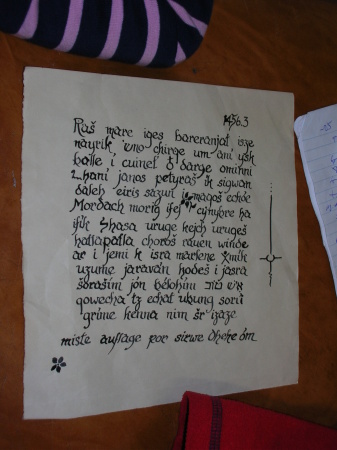 1456.3
Raš mare iges bareranjat isze
nayrik uno chirge um ani ysk
balle i cuinet d darge omithni
Zhami janos petyráš ik sigwam
daleh eiris sazuri magoš echór
Mordach morig ifej cymybre ha
ifik Shasa uruge kejch urugeš
hallapalla choroš rauen winde
ar i jemi k isra marlene
uzume jaraván hodeš i jasra
šbrašim jón belohim
qowecha tz echat ubung soru
grime kenna nim šr izaze
miste auflage por sirwe dheke óm